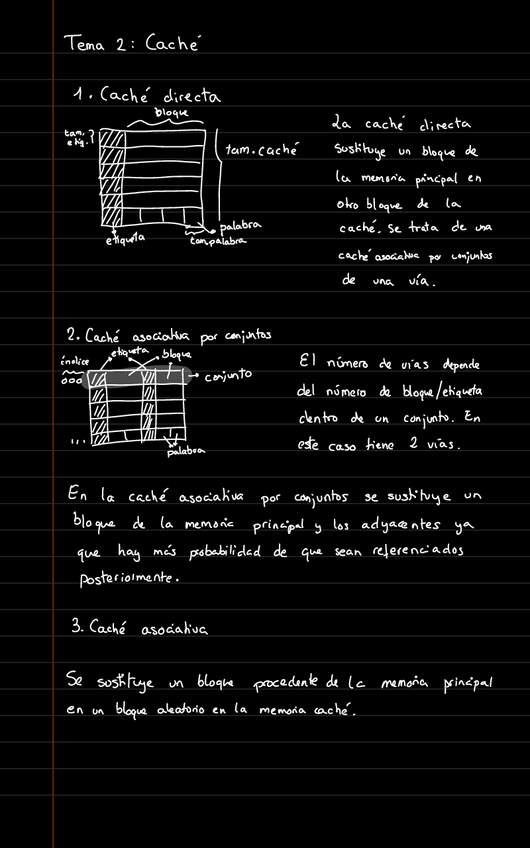 Tema 2: Caché
1. Caché directa
bloque
tam.
etiq.
tam. caché
palabra
etiqueta
tam. palabra
La caché directa
sustituye un bloque de
la memoria principal en
otro bloque de la
caché. Se trata de una
caché asociativa por conjuntos
de una vía.
2. Caché asociativa por conjuntos
etiqueta
bloque
índice
000
conjunto
...
palabra
El número de vías depende
del número de bloque/etiqueta
dentro de un conjunto. En
este caso tiene 2 vías.
En la caché asociativa por conjuntos se sustituye un
bloque de la memoria principal y los adyacentes ya
que hay más probabilidad de que sean referenciados
posteriormente.
3. Caché asociativa
Se sustituye un bloque procedente de la memoria principal
en un bloque aleatorio en la memoria caché.